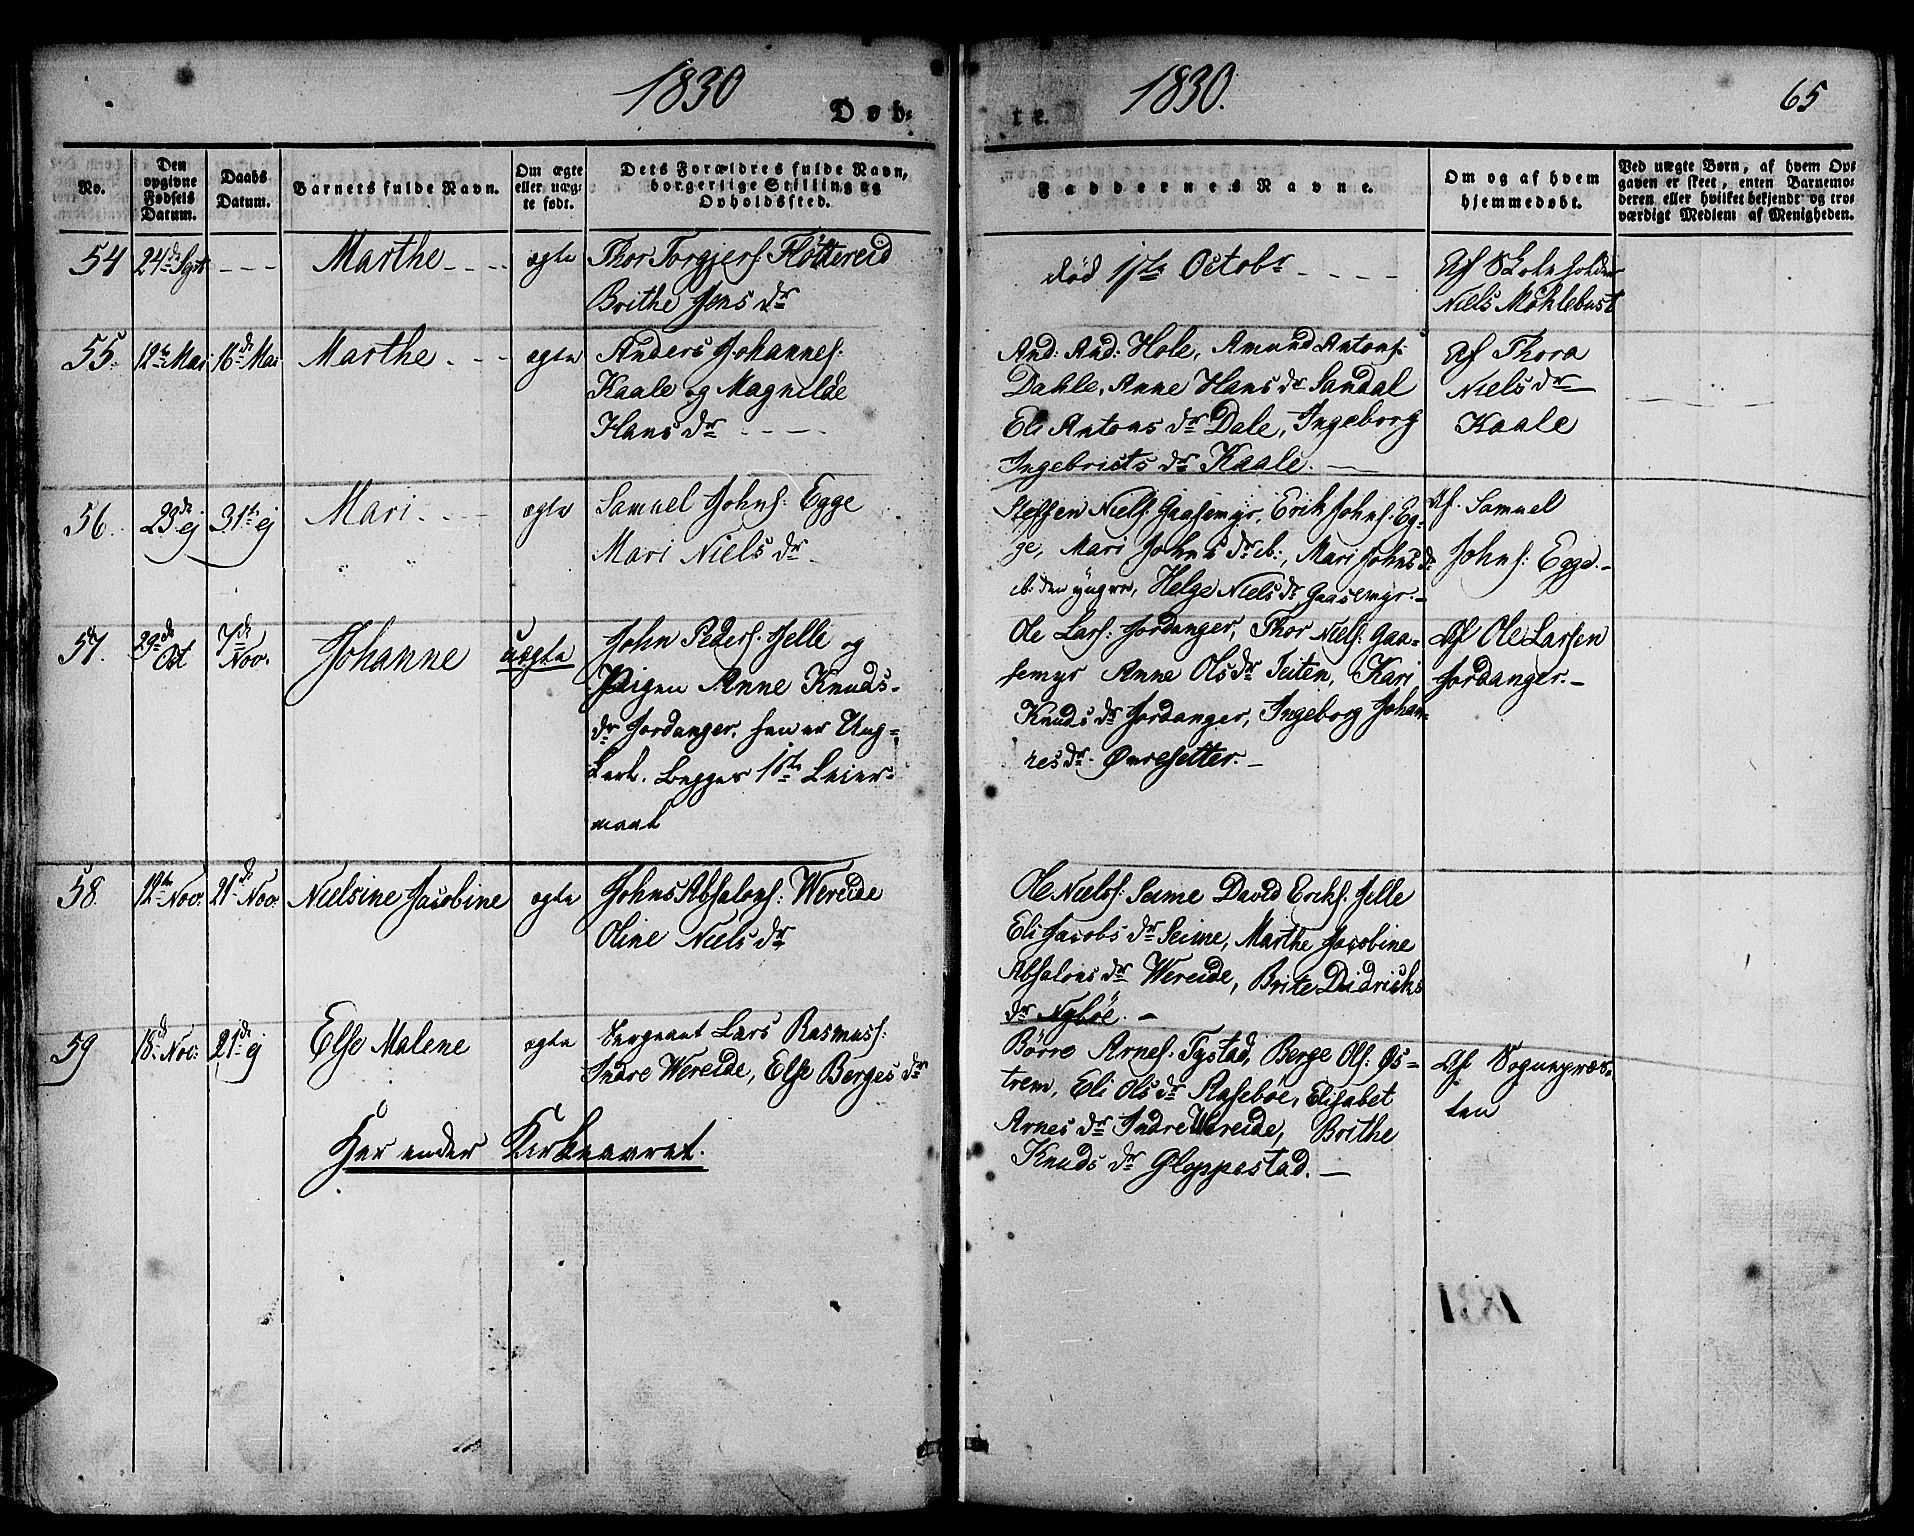 1830
Døb-
te.
1830.
65
No.
Den opgivne Fødsels Datum.
Daabs Datum.
Barnets fulde Navn.
Om ægte eller uægte født.
Dets Forældres fulde Navn, borgerlige Stilling og Opholdssted.
Faddernes Navne.
Om og af hvem hjemmedøbt.
Ved uægte Børn, af hvem Opgaven er skeet, enten Barnemoderen eller hvilket bekjendt og troværdigt Medlem af Menigheden.
54 24de Sept - - - Marthe - - . . ægte Thor Torgjers: Flöttereid
Brithe Jens dr
død 1ste Octobr - - - -
Af Skoleholder
Niels Möhlebust
55. 12te Mai 16de Mai Marthe. - - ægte Anders Johannes:
Kaale og Magnilde
Hans dr - - -
And: And: Hole, Amund Antons:
Dahle, Anne Hans dr Sandal
Eli Antons dr Dale, Ingeborg
Ingebricts dr Kaale. —
Af Thora
Niels dr
Kaale
56. 23de ej 31te ej Mari. - - ægte Samuel Johns: Egge
Mari Niels dr
Steffen Niels: Gaasemyr, Erik Johns: Eg-
ge, Mari Johns dr ib:, Mari Johns dr
ib: den yngre, Helge Niels dr Gaasemyr. -
Af. Samuel
Johns: Egge. -
57. 29de Oct 7de Nov. Johanne uægte John Peders: Hjelle og
Pigen Anne Knuds-
dr Jordanger, han er Ung-
karl. Begges 1ste Leier-
maal
Ole Lars: Jordanger, Thor Niels: Gaa-
semyr Anne Ols dr Teiten, Kari
Knuds dr Jordanger, Ingeborg Johan-
nes dr. Øvresetter. -
Af Ole Larsen
Jordanger. -
58. 12te Nov: 21de Nov: Nielsine Jacobine ægte Johns Absalons: Wereide
Oline Niels dr
Ole Niels: Seime David Eriks: Hjelle
Eli Jacobs dr Seime, Marthe Jacobine
Absalons dr Wereide, Brite Didrichs
dr Nyböe. -
59 18de Nov: 21de ej Else Malene ægte Sergeant Lars Rasmus:
Indre Wereide, Else Berges dr
Börre Arnes: Tystad, Berge Ols: Øs-
trem, Eli Ols dr Raseböe, Elisabet
Arnes dr Indre Wereide, Brithe
Knuds dr Gloppestad. —
Af Sognepræs-
ten
Her ender Kirkeaaret.
1831